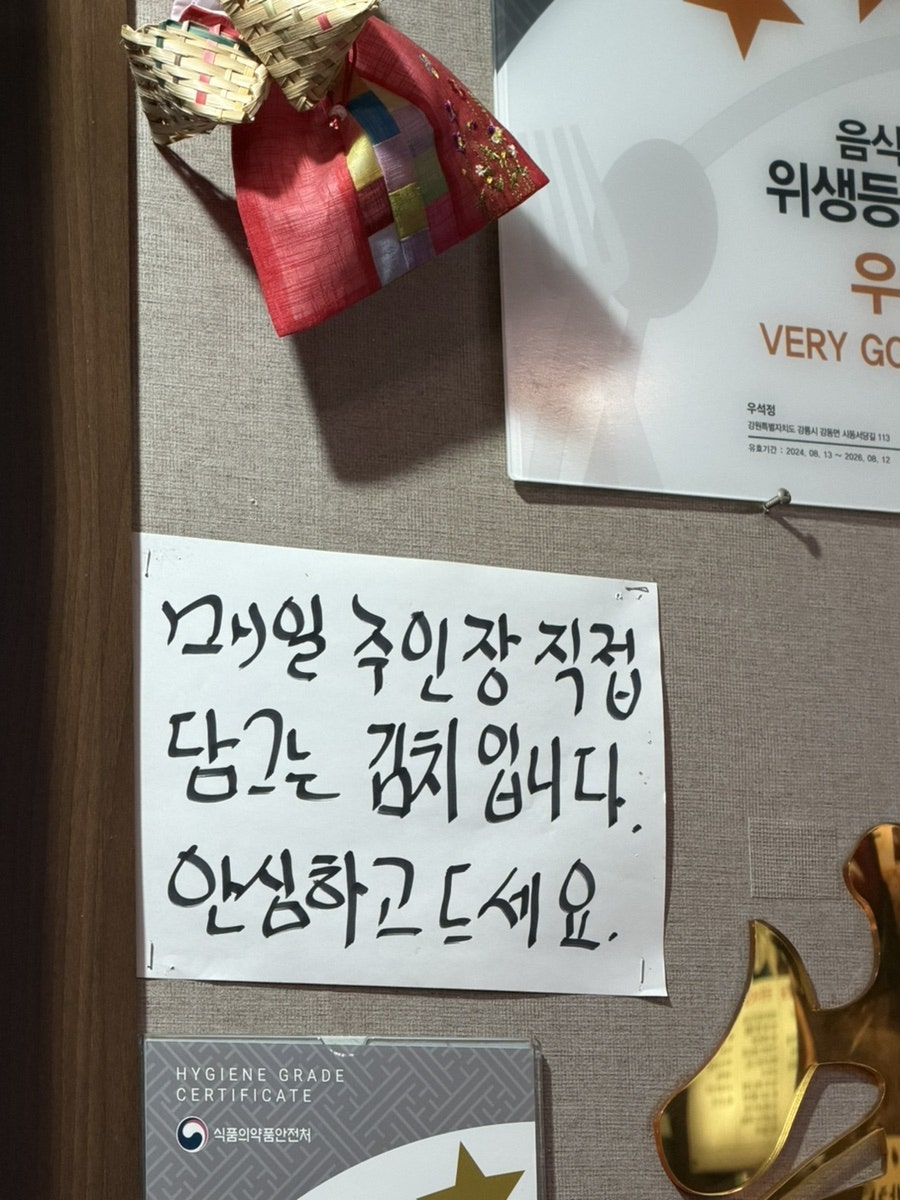 음식
위생등
우
VERY GO
우석정
강원특별자치도 강릉시 강동면 시동서당길 113
유효기간 : 2024. 08. 13 ~ 2026. 08. 12
매일 주인장 직접
담그는 김치입니다.
안심하고 드세요.
HYGIENE GRADE
CERTIFICATE
식품의약품안전처